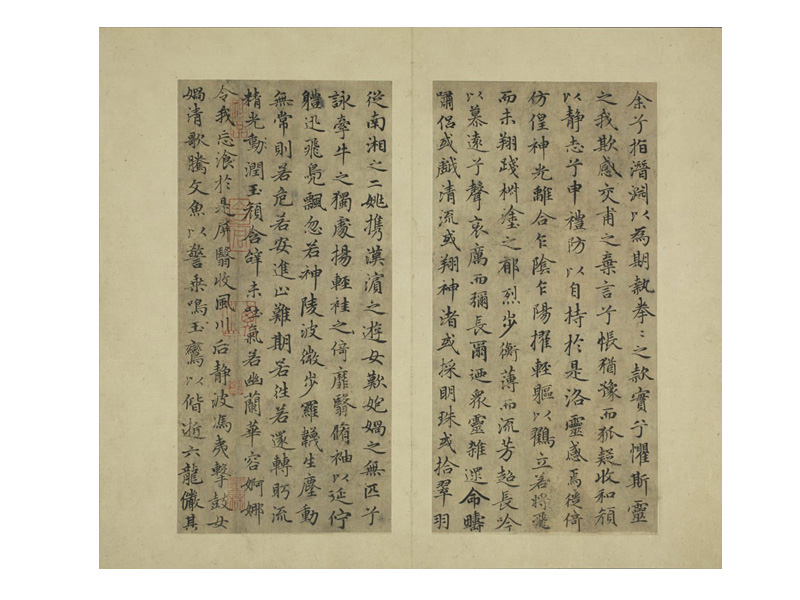 余兮指潛淵以為期執拳〻之款實兮懼斯靈
之我欺感交甫之棄言兮悵猶豫而狐疑收和顏
以静志兮申禮防以自持於是洛靈感焉徙倚
仿偟神光離合乍陰乍陽擢輕軀以鶴立若將飛
而未翔踐椒塗之郁烈步衡薄而流芳超長吟
以慕遠兮聲哀厲而彌長爾迺衆靈雜遝命疇
嘯侶或戲清流或翔神渚或採明珠或拾翠羽
從南湘之二姚攜漢濱之遊女歎匏媧之無匹兮
詠牽牛之獨處揚輕袿之倚靡翳脩袖以延佇
軆迅飛鳧飄忽若神陵波微步羅韈生塵動
無常則若危若安進止難期若往若還轉眄流
精光動潤玉顏含辭未吐氣若幽蘭華容婀娜
令我忘飡於是屏翳收風川后静波馮夷擊鼓女
媧清歌騰文魚以警乘鳴玉鸞以偕逝六龍儼其